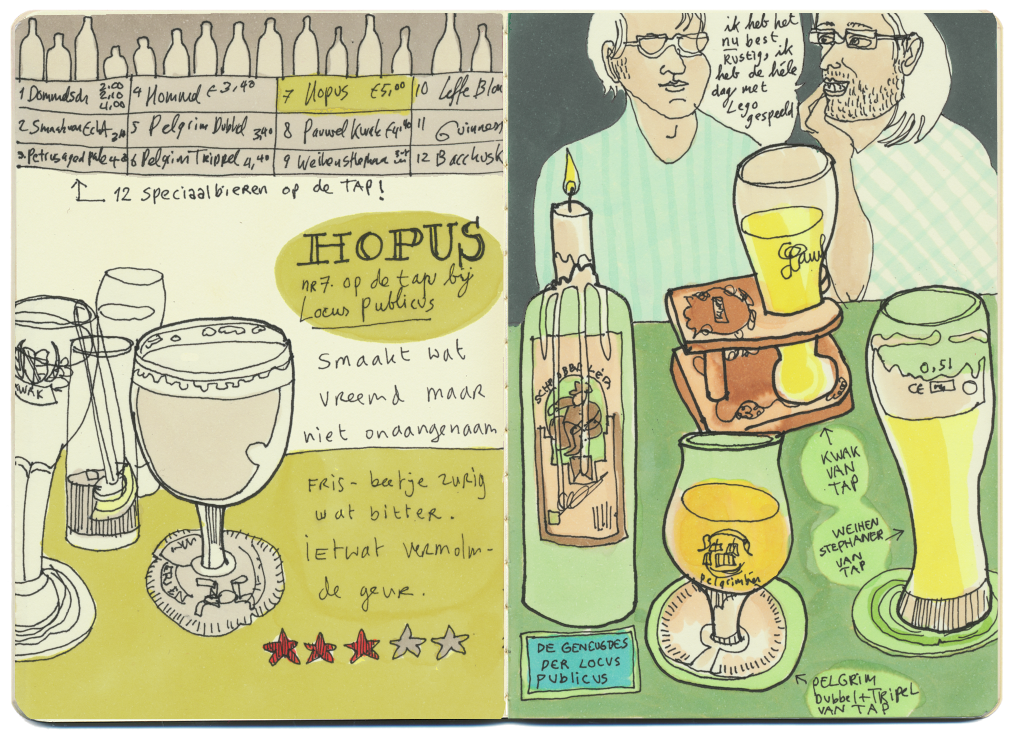 1 Dommelsch 2.00 2.10 4.00
4 Hommel € 3,40
7 Hopus €5,00
10 Leffe Blon
2. Smaak van Echt
5 Pelgrim Dubbel 3,40
8 Pauwel Kwak €4,
11 Guinness
3. Petrus aged pale
6 Pelgrim Trippel 4,40
9 Weihenstephaner
12 Bacchusk
↑ 12 speciaalbieren op de TAP!
HOPUS
nr 7. op de tap bij
Locus Publicus
Smaakt wat
vreemd maar
niet onaangenaam
FRIS - beetje zurig
wat bitter.
iETwat vermolm-
de geur.
KWAK
ik heb het
nu best
Rustig, ik
heb de hèle
dag met
Lego
gespeeld
Pauwl
0,5l
CE
KWAK
VAN
TAP
WEIHEN
STEPHANER
VAN
TAP
pelgrimbier
DE GENEUGDES
DER LOCUS
PUBLICUS
PELGRIM
Dubbel+TRIPEL
VAN TAP